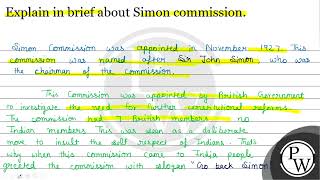 Explain in brief about Simon commission.
Simon Commission was appointed in November 1927. This
commission was named after Sir John Simon, who was
the chairman of the commission.
This Commission was appointed by British Government
to investigate the need for further constitutional reforms.
The commission had 7 British members no
Indian members. This was seen as a deliberate
move to insult the self respect of Indians. Thats
why when this commission came to India people
greeted the commission with slogan "Go back Simon"
PW